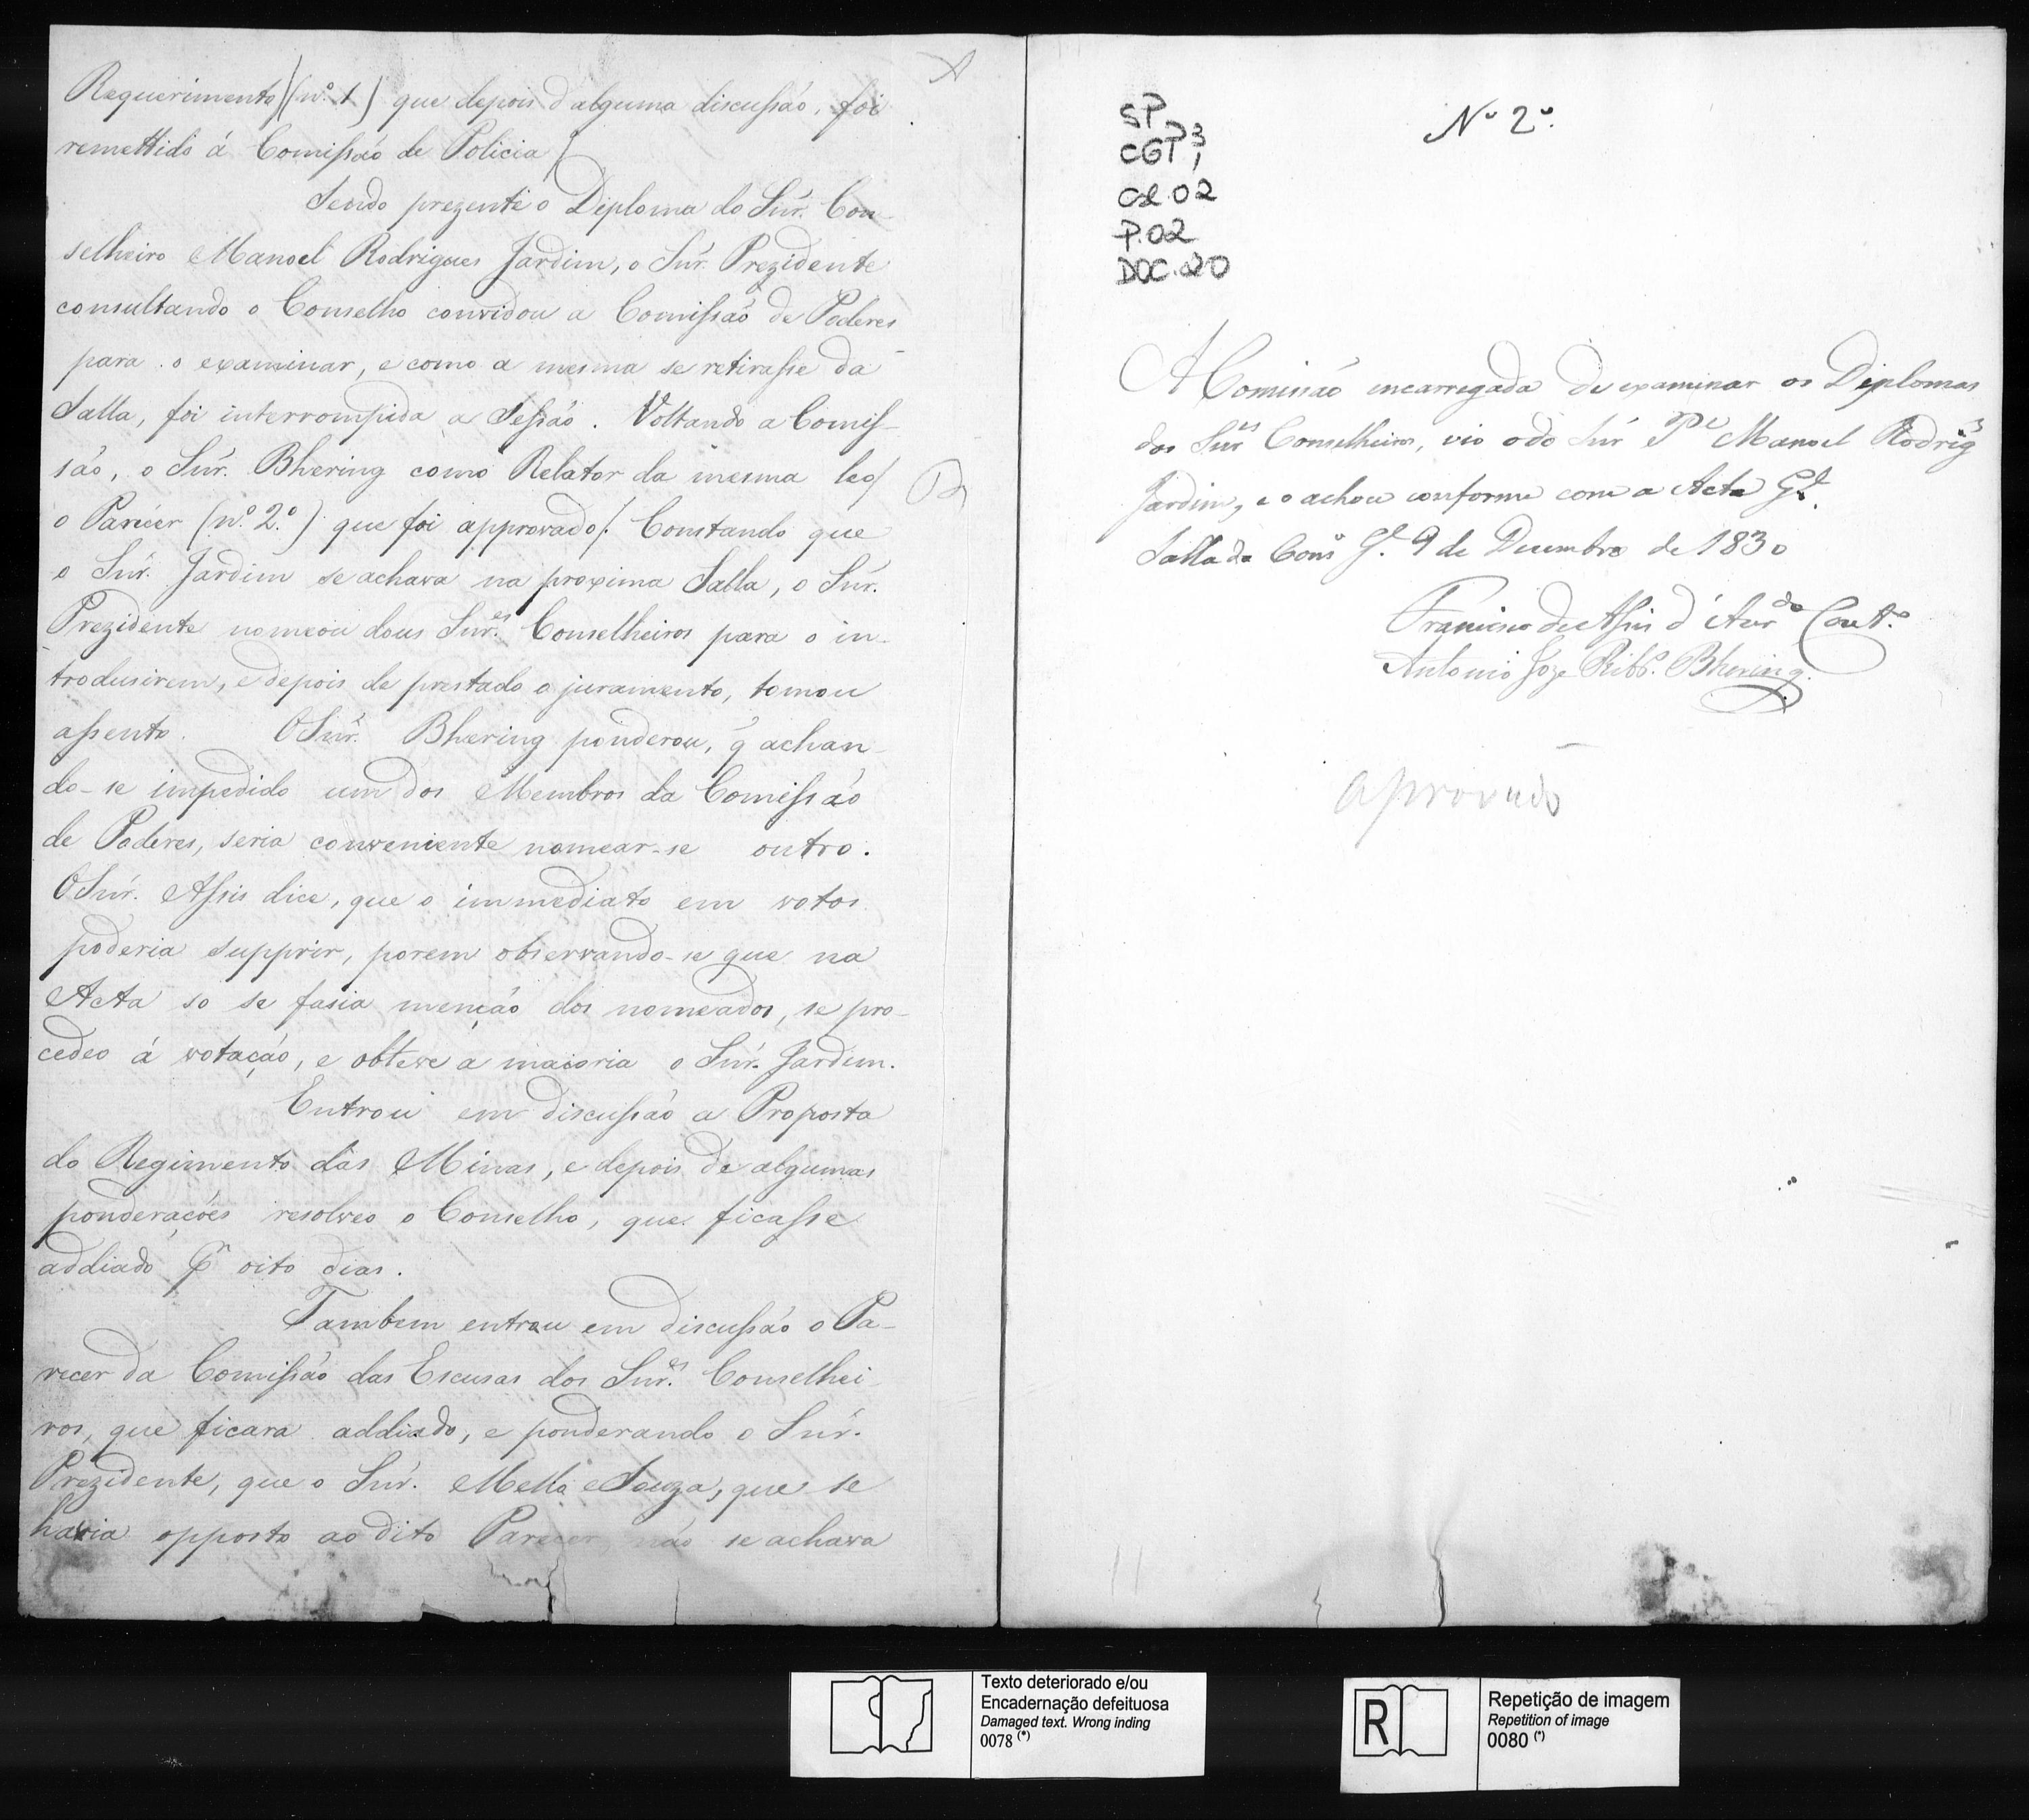 Requerimento (nº 1) que depois d'alguma discussão, foi
remettido á Comissão de Policia
Sendo prezente o Diploma do Snr. Con-
selheiro Manoel Rodrigues Jardim, o Snr. Prezidente
consultando o Conselho convidou a Comissão de Poderes
para o examinar, e como a mesma se retirasse da
Salla, foi interrompida a Sessão. Voltando a Comis-
são, o Snr. Bhering como Relator da mesma leo
o Parecer (nº 2.º) que foi approvado. Constando que
o Snr. Jardim se achava na proxima Salla, o Snr.
Prezidente nomeou dous Snr.es Conselheiros para o in-
trodusirem, e depois de prestado o juramento, tomou
assento. O Snr. Bhering ponderou, q̃ achan-
do-se impedido um dos Membros da Comissão
de Poderes, seria conveniente nomear-se outro.
O Snr. Assis dice, que o immediato em votos
poderia supprir, porem observando-se que na
Acta so se fasia menção dos nomeados, se pro-
cedeo á votação, e obteve a maioria o Snr. Jardim.
Entrou em discussão a Proposta
do Regimento das Minas, e depois de algumas
ponderações resolveo o Conselho, que ficasse
addiado pr oito dias.
Tambem entrou em discussão o Pa-
recer da Comissão das Escusas dos Snr.es Conselhei-
ros, que ficara addiado, e ponderando o Snr.
Prezidente, que o Snr. Mello e Souza, que se
havia opposto ao dito Parecer, não se achava
SP
CGP3,
Cx.02
P.02
DOC.20
Nº 2º.
A Comissão encarregada de examinar os Diplomas
dos Snr.es Conselheiros, vio o do Snr Pe Manoel Rodrigs
Jardim, e o achou conforme com a Acta Gl.
Salla do Conso Gl. 9 de Dezembro de 1830
Francisco de Assis d'Azrdo Couto
Antonio Joze Ribro. Bhering.
aprovado
Texto deteriorado e/ou
Encadernação defeituosa
Damaged text. Wrong inding
0078 (*)
R
Repetição de imagem
Repetition of image
0080 (*)